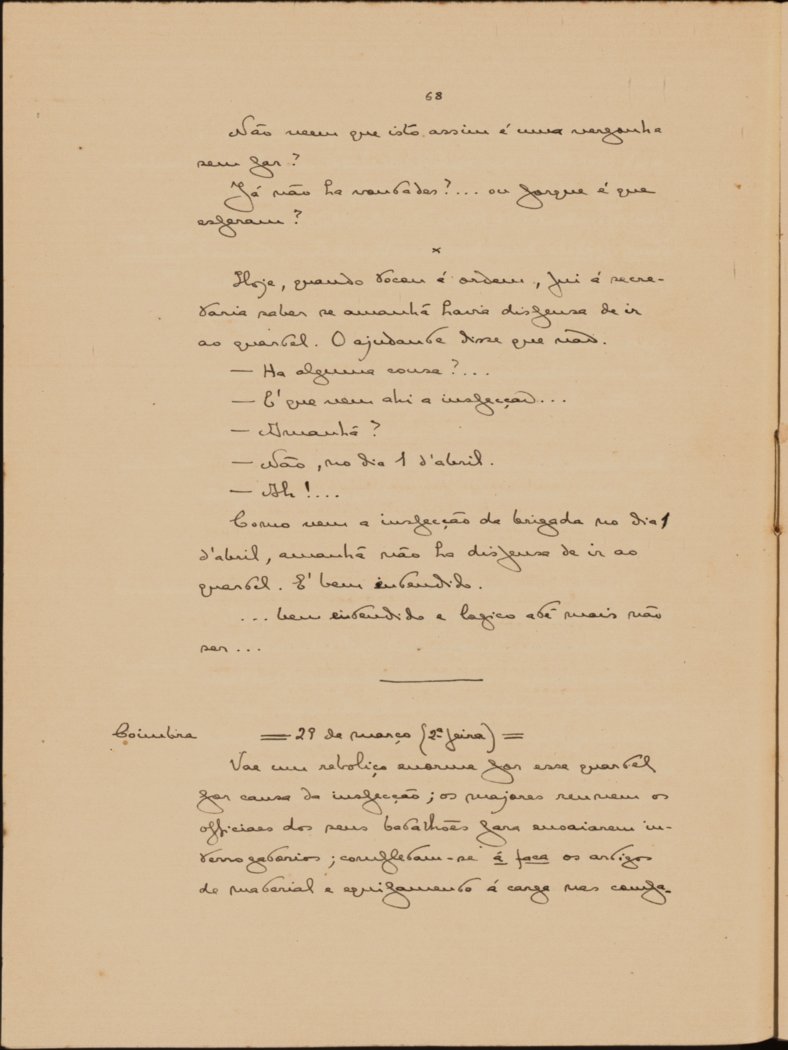 68
Não veem que isto assim é uma vergonha
sem par?
Já não ha vontades?... ou porque é que
esperam?
×
Hoje, quando tocou á ordem, fui á secre-
taria saber se amanhã havia dispensa de ir
ao quartel. O ajudante disse que não.
— Ha alguma cousa?...
— E' que vem ahi a inspecção...
— Amanhã?
— Não, no dia 1 d'abril.
— Ah!...
Como vem a inspecção da brigada no dia 1
d'abril, amanhã não ha dispensa de ir ao
quartel. E' bem entendido.
... bem entendido e logico até mais não
ser...
Coimbra = 29 de março (2ª feira) =
Vae um reboliço enorme por esse quartel
por causa da inspecção; os majores reunem os
officiaes dos seus batalhões para ensaiarem in-
terrogatorios; completam-se á faca os artigos
de material e equipamento á carga nas compa-